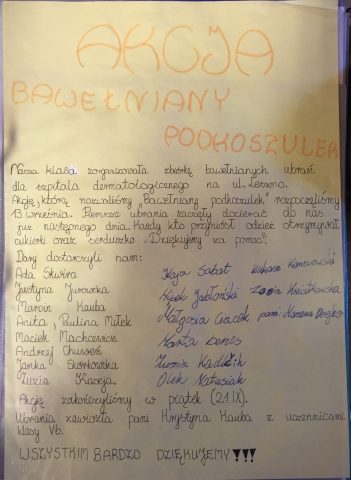 AKCJA
BAWEŁNIANY
PODKOSZULEK
Nasza klasa zorganizowała zbiórkę bawełnianych ubrań
dla szpitala dermatologicznego na ul. Leszno.
Akcję, którą nazwaliśmy „Bawełniany podkoszulek" rozpoczęliśmy
13 września. Pierwsze ubrania zaczęły docierać do nas
już następnego dnia. Każdy kto przyniósł odzież otrzymywał
cukierki oraz serduszko „Dziękujemy za pomoc".
Dary dostarczyli nam:
Ada Skwira Kaja Sabat Łukasz
Justyna Jurowska Jabłoński Zosia Kwiatkowska
Marcin Kauba Małgosia pani Marzena
Anita, Paulina Miłek Marta
Maciek
Andrzej
Janka Sikorkowska Olek Matusiak
Łucja
Akcję zakończyliśmy w piątek (21.IX).
Ubrania zawiozła pani Krystyna Kauba z uczennicami
klasy Vb.
WSZYSTKIM BARDZO DZIĘKUJEMY!!!